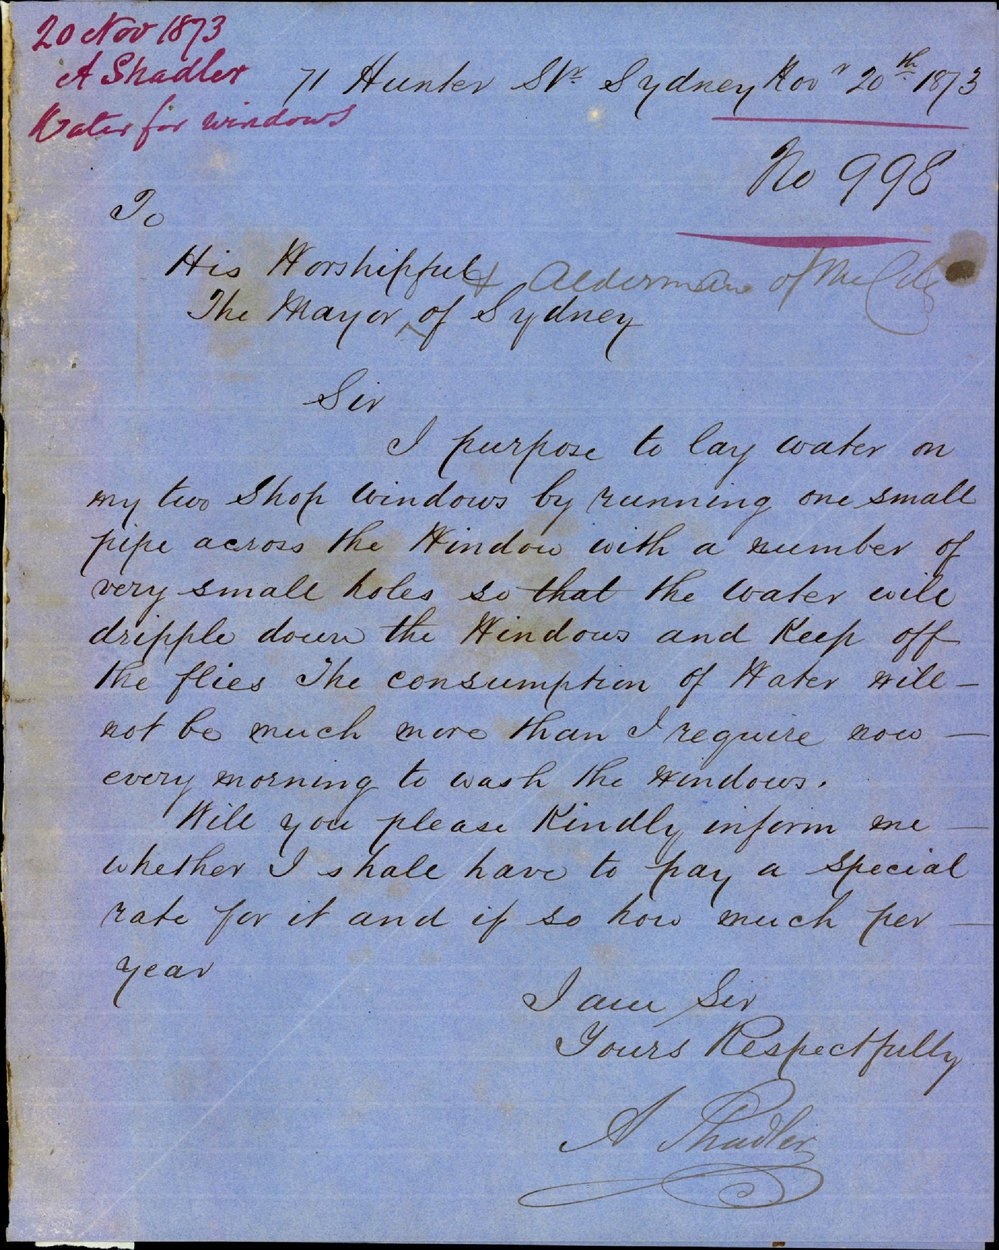 20 Nov 1873
A Shadler
Water for windows
71 Hunter St. Sydney Novr 20th 1873
No 998
To
His Worshipful & Aldermen of the City
The Mayor ^ of Sydney
Sir
I purpose to lay water on
my two Shop Windows by running one small
pipe across the Window with a number of
very small holes so that the Water will
dripple down the Windows and Keep off
the flies The consumption of Water will –
not be much more than I require now –
every morning to wash the windows.
Will you please Kindly inform me –
whether I shall have to pay a special
rate for it and if so how much per –
year
I am Sir
Yours Respectfully
A Shadler